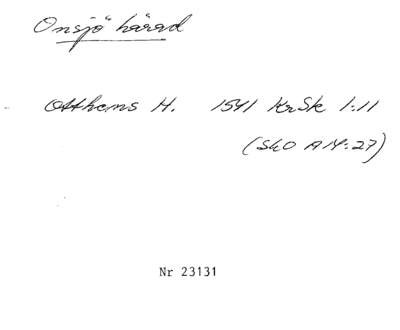 Onsjö härad
Otthems H. 1541 KrSk 1:11
(SkO A IV:27)
Nr 23131